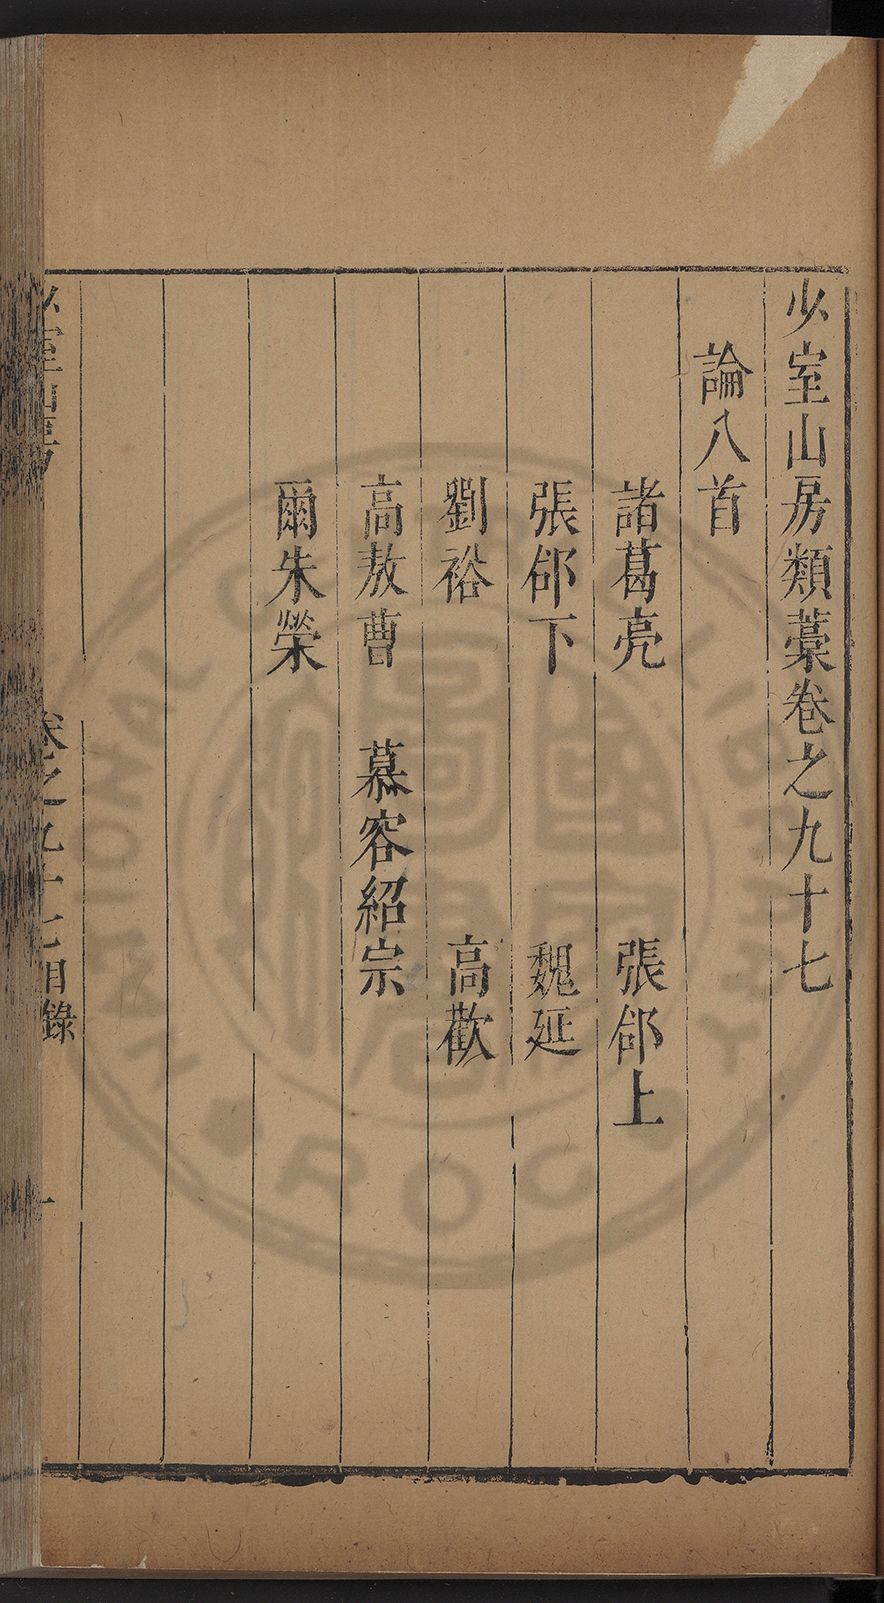 少室山房類藁卷之九十七
論八首
諸葛亮 張郃上
張郃下 魏延
劉裕 高歡
高敖曹 慕容紹宗
爾朱榮
少室山房 卷之九十七目錄 一
ROC